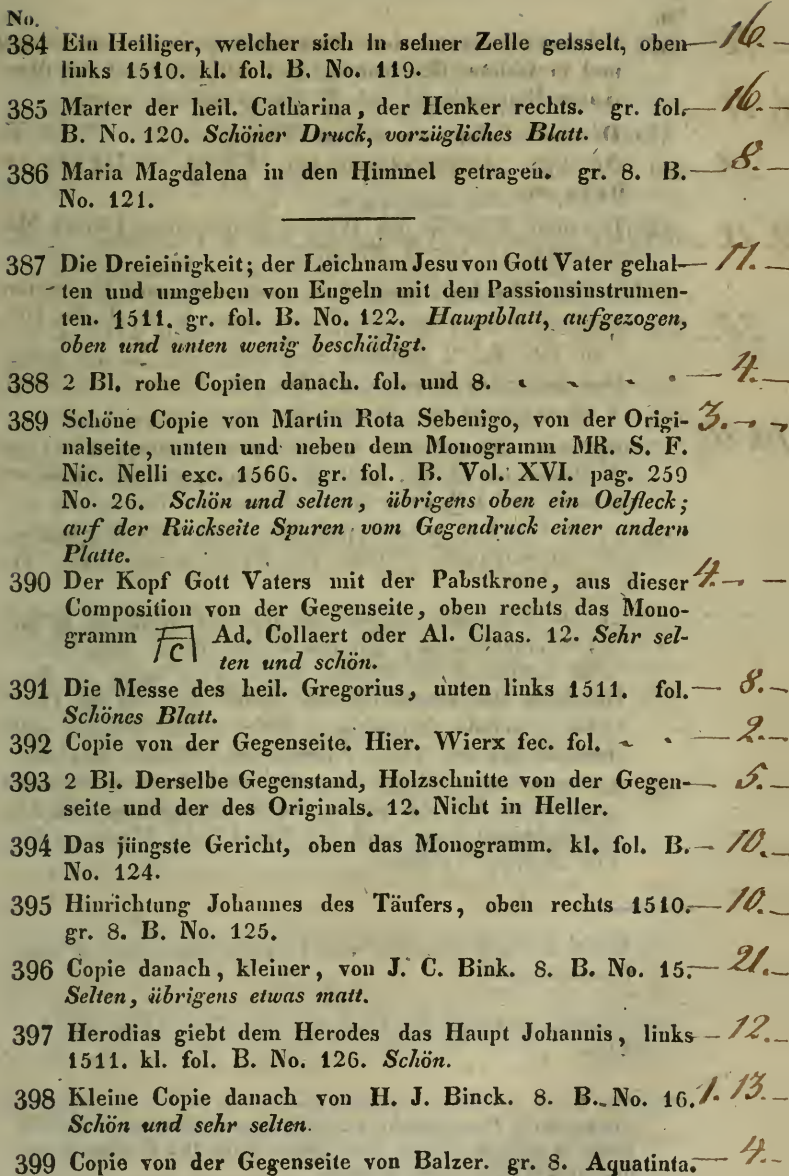 No.
384 Ein Heiliger, welcher sich in seiner Zelle geisselt, oben — 16. —
links 1510. kl. fol. B. No. 119.
385 Marter der heil. Catharina, der Henker rechts. gr. fol. — 16. —
B. No. 120. Schöner Druck, vorzügliches Blatt.
386 Maria Magdalena in den Himmel getragen. gr. 8. B. — 8. —
No. 121.
387 Die Dreieinigkeit; der Leichnam Jesu von Gott Vater gehal- — 11. —
ten und umgeben von Engeln mit den Passionsinstrumen-
ten. 1511. gr. fol. B. No. 122. Hauptblatt, aufgezogen,
oben und unten wenig beschädigt.
388 2 Bl. rohe Copien danach. fol. und 8. — 4. —
389 Schöne Copie von Martin Rota Sebenigo, von der Origi- 3. — —
nalseite, unten und neben dem Monogramm MR. S. F.
Nic. Nelli exc. 1566. gr. fol. B. Vol. XVI. pag. 259
No. 26. Schön und selten, übrigens oben ein Oelfleck;
auf der Rückseite Spuren vom Gegendruck einer andern
Platte.
390 Der Kopf Gott Vaters mit der Pabstkrone, aus dieser 4. — —
Composition von der Gegenseite, oben rechts das Mono-
gramm Ad. Collaert oder Al. Claas. 12. Sehr sel-
ten und schön.
391 Die Messe des heil. Gregorius, unten links 1511. fol. — 8. —
Schönes Blatt.
392 Copie von der Gegenseite. Hier. Wierx fec. fol. — 2. —
393 2 Bl. Derselbe Gegenstand, Holzschnitte von der Gegen- — 5. —
seite und der des Originals. 12. Nicht in Heller.
394 Das jüngste Gericht, oben das Monogramm. kl. fol. B. — 10. —
No. 124.
395 Hinrichtung Johannes des Täufers, oben rechts 1510. — 10. —
gr. 8. B. No. 125.
396 Copie danach, kleiner, von J. C. Bink. 8. B. No. 15. — 21. —
Selten, übrigens etwas matt.
397 Herodias giebt dem Herodes das Haupt Johannis, links — 12. —
1511. kl. fol. B. No. 126. Schön.
398 Kleine Copie danach von H. J. Binck. 8. B. No. 16. 1. 13. —
Schön und sehr selten.
399 Copie von der Gegenseite von Balzer. gr. 8. Aquatinta. — 4. —